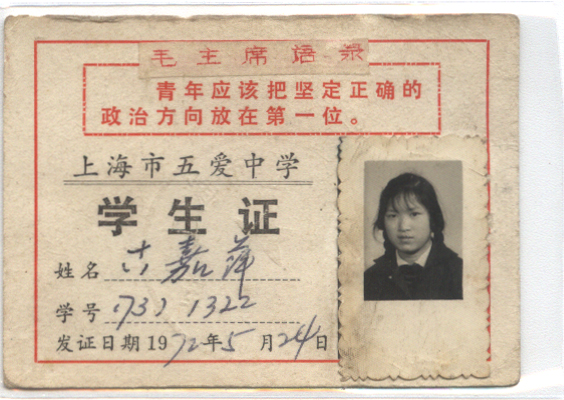 毛主席语录
青年应该把坚定正确的
政治方向放在第一位。
上海市五爱中学
学生证
姓名 嘉萍
学号 1322
发证日期 1972年5月24日